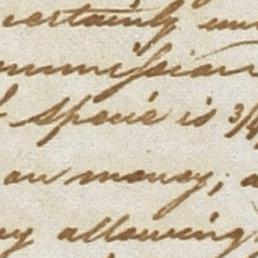 certainly
ommission
specie is 3/4
on money;
allowing